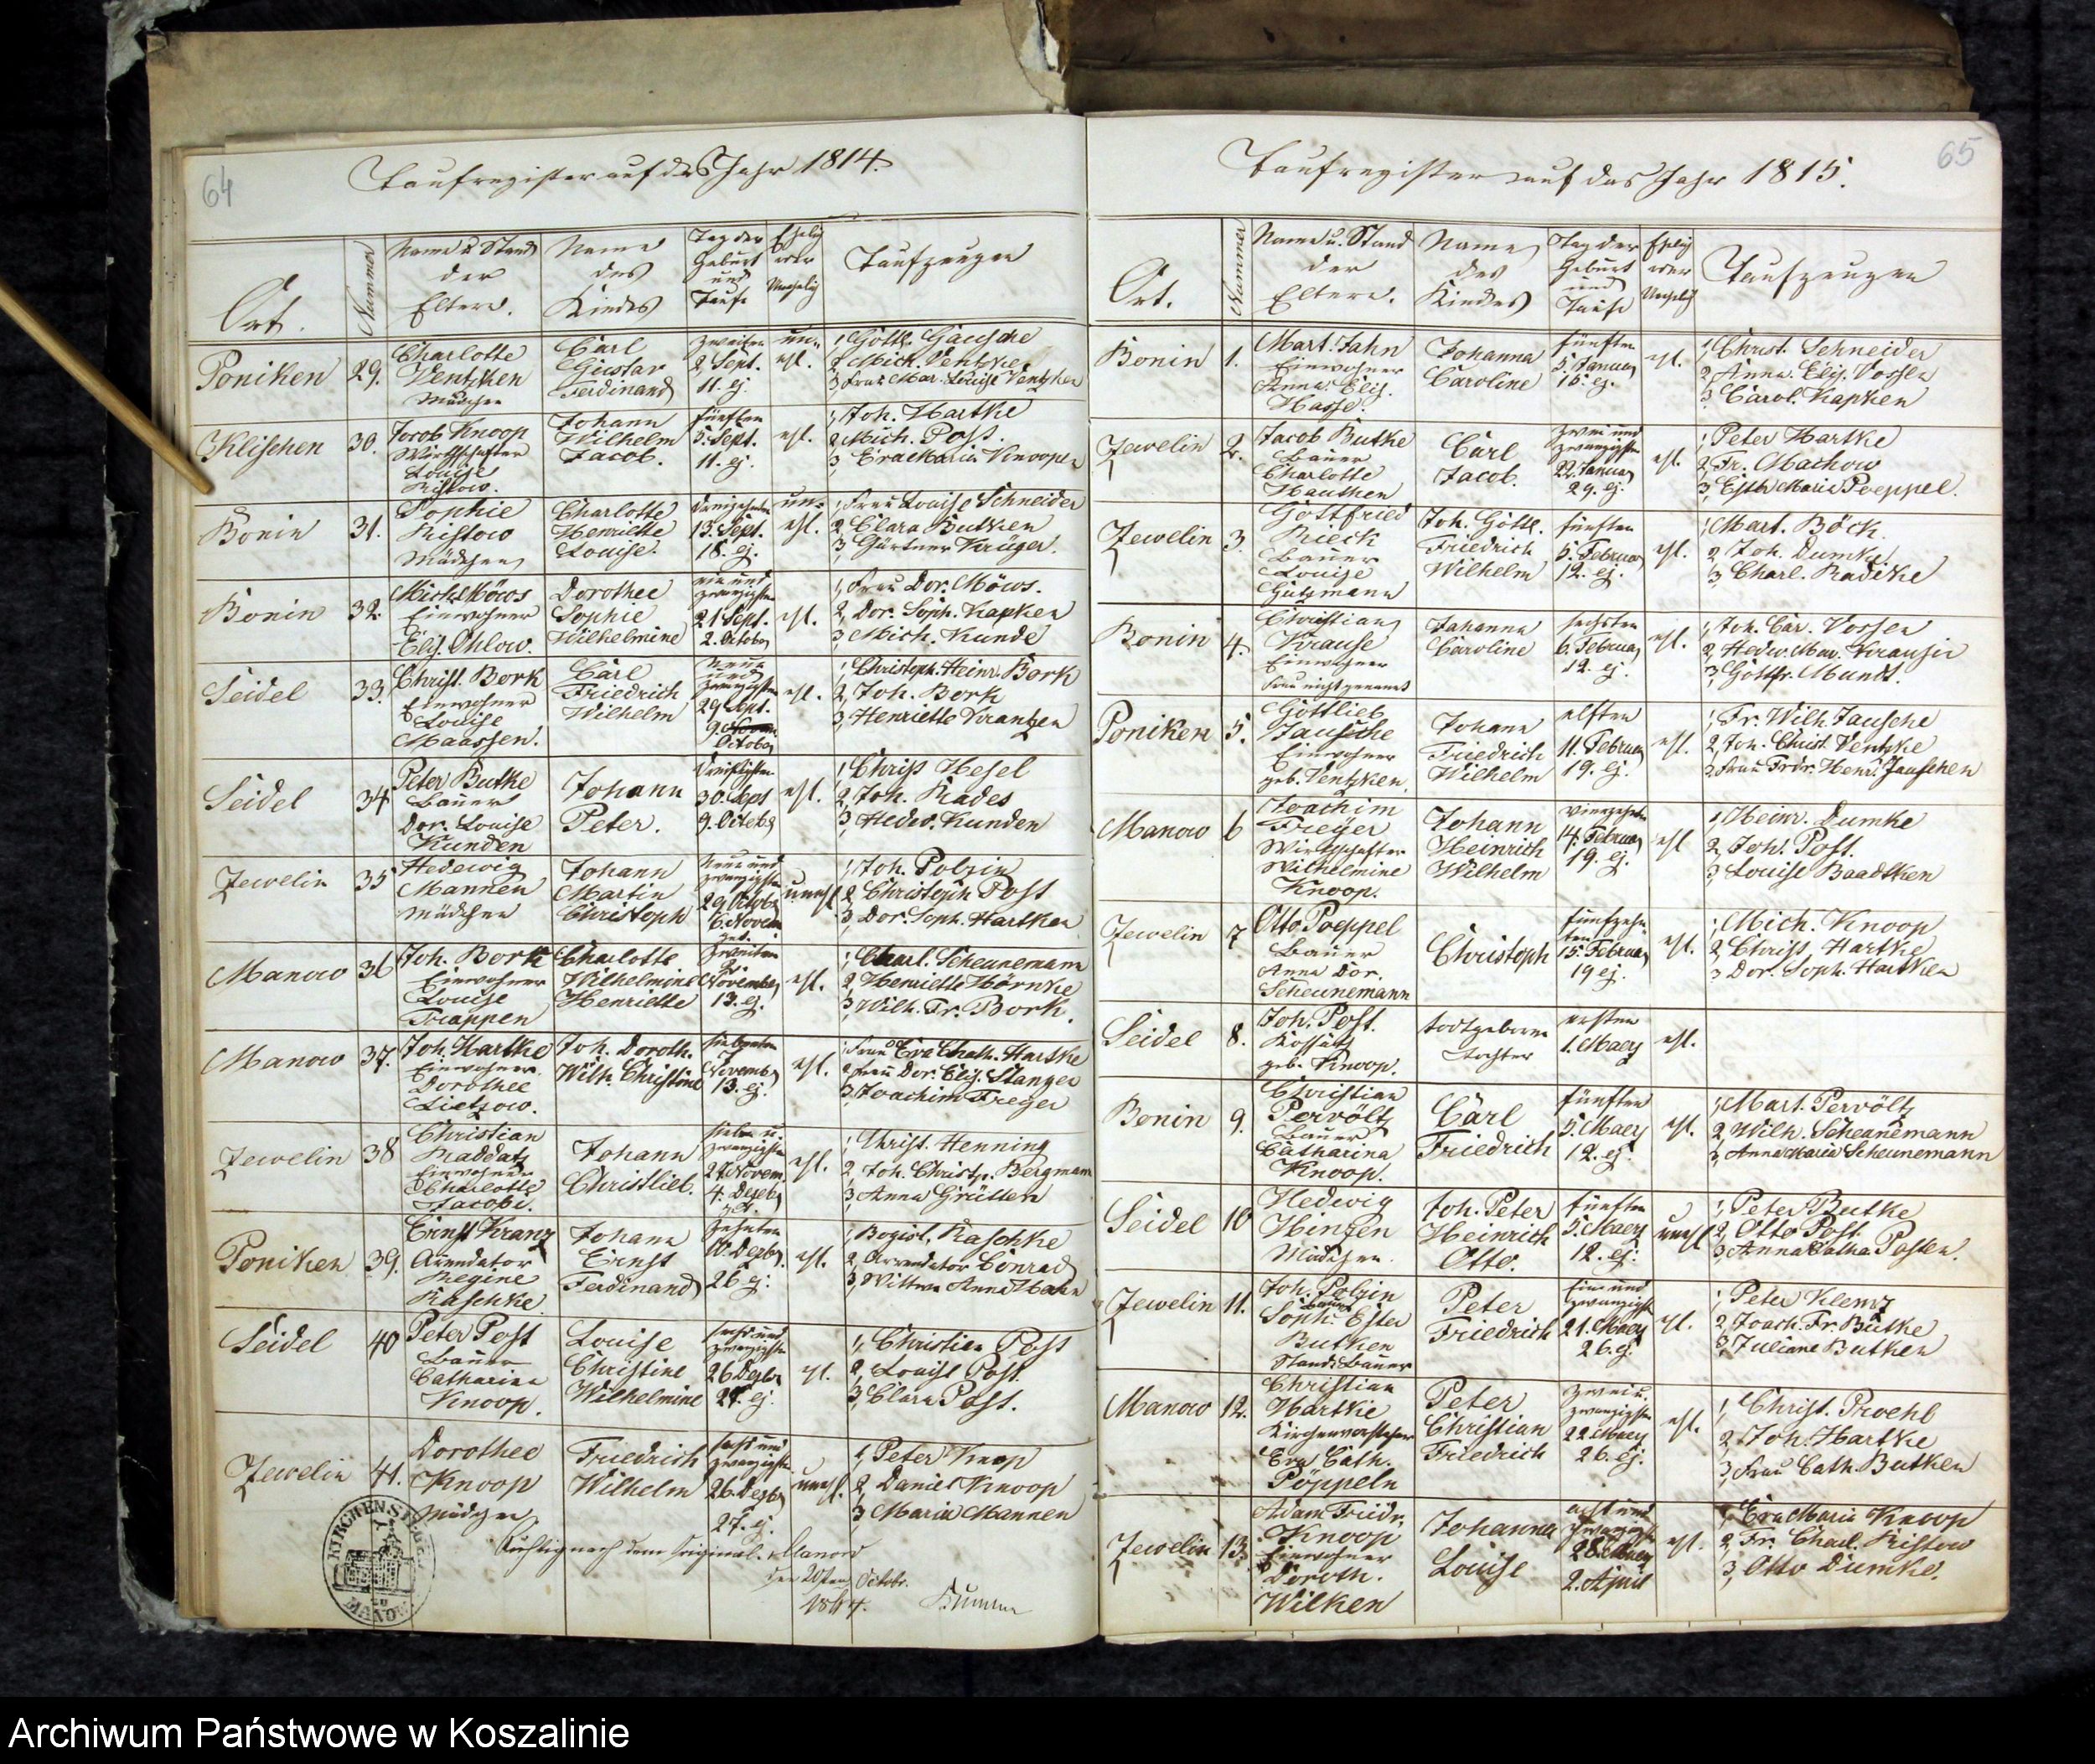 64
Taufregister auf das Jahr 1814.
Ort.
Nummer
Name u. Stand
der
Eltern.
Name
des
Kindes
Tag der
Geburt
und
Taufe
Ehelig
oder
Unehelig
Taufzeugen
Poniken
29.
Charlotte
Ventzken
Mädchen
Carl
Gustav
Ferdinand
zweiten
2. Sept.
11. ej.
un-
ehl.
1, Gottl. Gausche
2, Mich. Ventzke
3, Frau Mar. Louise Ventzken
Klischen
30.
Jacob Knoop
Wirthschafter
Louise
Ristow.
Johann
Wilhelm
Jacob.
fünften
5. Sept.
11. ej.
ehl.
1, Joh. Hartke
2, Mich. Post.
3, Eva Maria Knoopen
Bonin
31.
Sophie
Ristow
Mädchen
Charlotte
Henriette
Louise.
dreizehnten
13. Sept.
18. ej.
un-
ehl.
1, Frau Louise Schneider
2, Clara Butken
3, Gärtner Krüger.
Bonin
32.
Mich. Möws
Einwohner
Elis. Ohlow.
Dorothee
Sophie
Wilhelmine
ein und
zwanzigsten
21 Sept.
2. Octobr
ehl.
1, Frau Dor. Möws.
2, Dor. Soph. Kapken
3, Mich. Kunde
Seidel
33.
Christ. Bork
Einwohner
Louise
Maassen.
Carl
Friedrich
Wilhelm
Neun
und
zwanzigsten
29 Sept.
9.
October
ehl.
1, Christoph. Heinr. Bork
2, Joh. Bork
3, Henriette Krantzen
Seidel
34
Peter Butke
Bauer
Dor. Louise
Kunden
Johann
Peter.
dreißigsten
30. Sept
9. Octobr
ehl.
1, Christ Hesel
2, Joh. Rades
3, Hedw. Kunden
Zewelin
35
Hedewig
Mannen
Mädchen
Johann
Martin
Christoph
Neun und
zwanzigsten
29 Octobr
6. Novem
get.
unehl
1, Joh. Polzin
2, Christoph Post
3, Dor. Soph. Hartken
Manow
36
Joh. Bork
Einwohner
Louise
Trappen
Charlotte
Wilhelmine
Henriette
zweiten
2.
November
13. ej.
ehl.
1, Charl. Scheunemann
2, Henriette Hörnke
3, Wilh. Fr. Bork.
Manow
37.
Joh. Hartke
Einwohner.
Dorothee
Lietzow.
Joh. Doroth.
Wilh. Christine
siebenten
7
Novembr
13. ej.
ehl.
1, Frau Eva Cath. Hartke
2, Frau Dor. Elis. Stanger
3, Joachim Freyer
Zewelin
38
Christian
Raddatz
Einwohner
Charlotte
Jacobi.
Johann
Christlieb.
sieben u.
zwanzigsten
27 Novem.
4. Dezebr
get.
ehl.
1, Christ. Henning
2, Joh. Christ. Bergmann
3, Anna Grütten
Poniken
39.
Ernst Kranz
Arendator
Regine
Raschke
Johann
Ernst
Ferdinand
Zehnten
10. Dezbr.
26 ej.
ehl.
1, Bogisl. Raschke
2, Arrendator Conrad
3, Wittwe Anna Hahn
Seidel
40
Peter Post
Bauer
Catharina
Knoop.
Louise
Christine
Wilhelmine
sechs und
zwanzigsten
26 Dezbr
27. ej.
ehl.
1, Christian Post
2, Louise Post.
3, Clara Post.
Zewelin
41.
Dorothee
Knoop
Mädchen
Friedrich
Wilhelm
sechs und
zwanzigsten
26. Dezbr
27. ej.
unehl.
1, Peter Knop
2, Daniel Knoop
3, Maria Mannen
Richtig nach dem Original. Manow
den 20sten Octobr.
KIRCHEN SIEGEL
ZU
MANOW
65
Taufregister auf das Jahr 1815.
Ort.
Nummer
Name u. Stand
der
Eltern.
Name
des
Kindes
Tag der
Geburt
und
Taufe
Ehelig
oder
Unehelig
Taufzeugen
Bonin
1.
Mart. Jahn
Einwohner
Anna Elis.
Hasse.
Johanna
Caroline
fünften
5. Januar
15. ej.
ehl.
1, Christ. Schneider
2, Anna Elis. Vossen
3, Carol. Kapken
Zewelin
2.
Jacob Butke
Bauer
Charlotte
Hauthen
Carl
Jacob.
zwei und
zwanzigsten
22. Januar
29. ej.
ehl.
1, Peter Hartke
2, Fr. Machow
3, Esth. Maria Poeppel.
Zewelin
3.
Gottfried
Rieck
Bauer
Louise
Gützmann
Joh. Gottl.
Friedrich
Wilhelm
fünften
5. Februar
12. ej.
ehl.
1, Mart. Böck.
2, Joh. Dumke
3, Charl. Radtke
Bonin
4.
Christian
Krause
Einwohner
Frau nicht genannt
Johanna
Caroline
sechsten
6. Februar
12. ej.
ehl.
1, Joh. Car. Vossen
2, Hedw. Mar. Krausin
3, Gottfr. Mundt.
Poniken
5.
Gottlieb
Jausche
Einwohner
geb. Ventzken.
Johann
Friedrich
Wilhelm
elften
11. Februar
19. ej.
ehl.
1, Fr. Wilh. Jausche
2, Joh. Christ. Ventzke
3, Frau Frdr. Henr. Jauschen
Manow
6
Joachim
Freyer
Wirthschafter
Wilhelmine
Knoop.
Johann
Heinrich
Wilhelm
vierzehnten
14. Februar
19. ej.
ehl
1, Heinr. Dumke
2, Joh. Post.
3, Louise Baadtken
Zewelin
7
Otto Poeppel
Bauer
Anna Dor.
Scheunemann
Christoph
fünfzehn
ten
15. Februar
19 ej.
ehl.
1, Mich. Knoop
2, Christ. Hartke
3 Dor. Soph. Hartken
Seidel
8.
Joh. Post.
Kossäth
geb. Knoop.
todtgeborne
Tochter
ersten
1. Maerz
ehl.
Bonin
9.
Christian
Pervöltz
Bauer
Catharina
Knoop.
Carl
Friedrich
fünften
5. Maerz
12. ej.
ehl.
1, Mart. Pervöltz
2, Wilh. Scheunemann
3, Anna Maria Scheunemann
Seidel
10
Hedwig
Hinzen
Mädchen.
Joh. Peter
Heinrich
Otto.
fünften
5. Maerz
12. ej.
unehl
1, Peter Butke
2, Otto Post.
3, Anna Catha Posten.
Zewelin
11.
Joh. Polzin
Bauer
Soph. Ester
Butken
Stand: Bauer
Peter
Friedrich
Ein und
zwanzigste
21. Maerz
26. ej.
ehl.
1, Peter Klemz
2, Joach. Fr. Butke
3, Juliane Butken
Manow
12.
Christian
Hartke
Kirchenvorsteher
Eva Cath.
Pöppeln
Peter
Christian
Friedrich
zwei u.
zwanzigsten
22. Maerz
26. ej.
ehl.
1, Christ. Proehl
2, Joh. Hartke
3, Frau Cath. Butken
Zewelin
13.
Adam Friedr.
Knoop
Einwohner
Doroth.
Wilken
Johanna
Louise
acht und
zwanzigste
28. Maerz
2. April
ehl.
1, Eva Maria Knoop
2, Fr. Charl. Ristow
3, Otto Dumke.
Archiwum Państwowe w Koszalinie